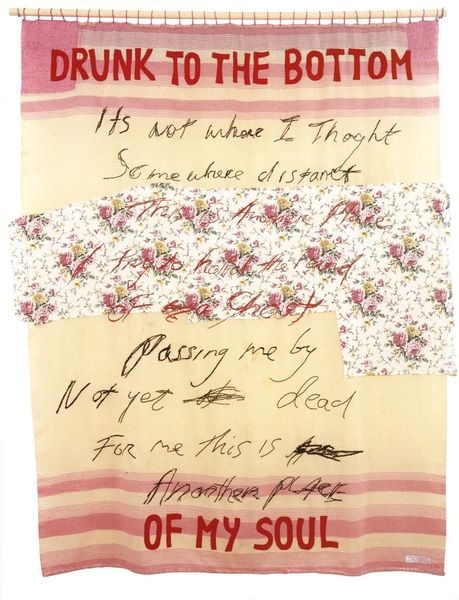 DRUNK TO THE BOTTOM
Its not where I Thoght
Somewhere distant
Another Place
I try to the hand
OF a Ghost
Passing me by
Not yet dead
FOR me this is
Another place
OF MY SOUL